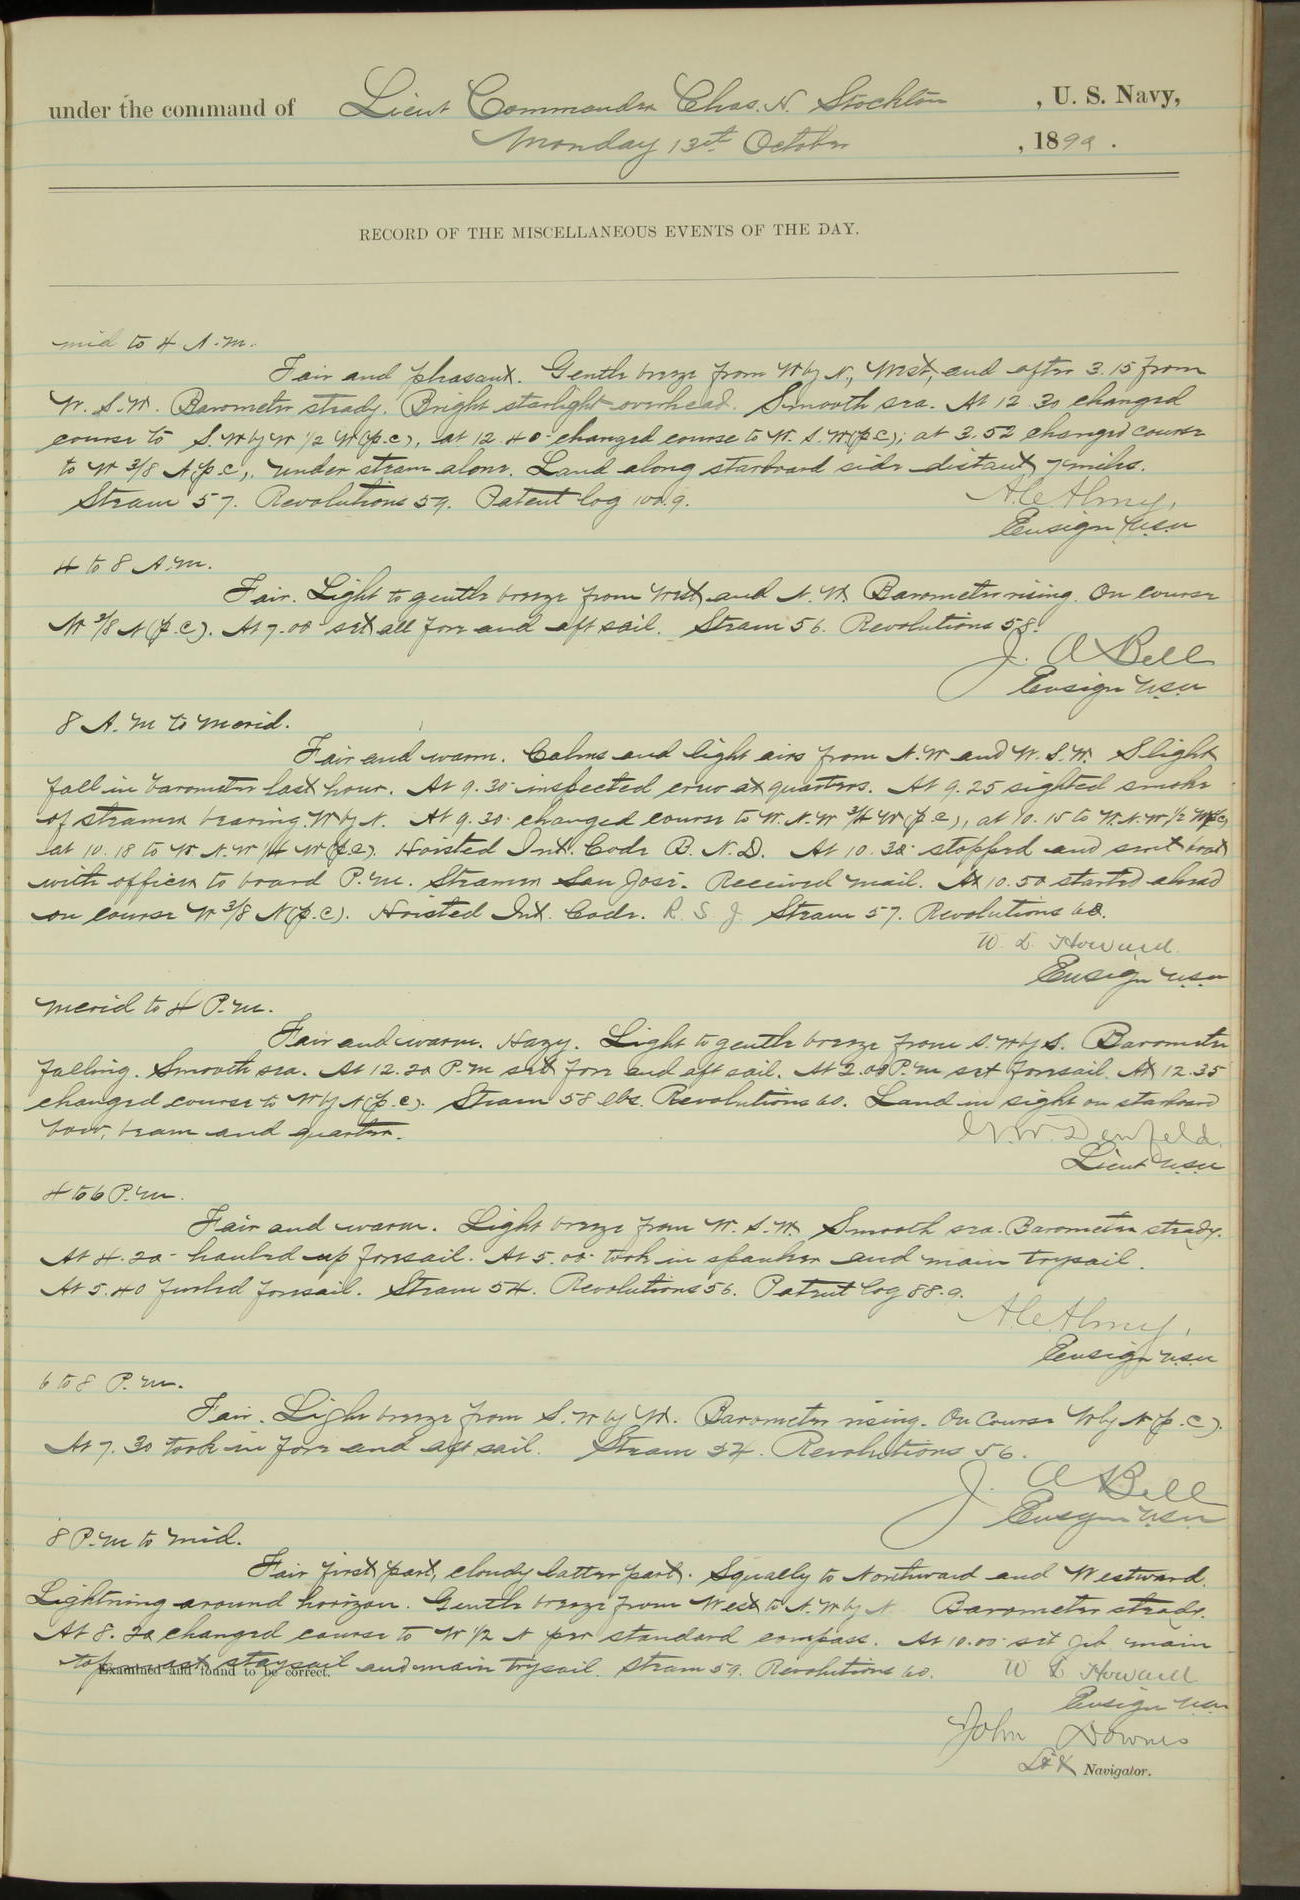 under the command of Lieut Commander Chas. H. Stockton, U. S. Navy,
Monday 13th October, 1890.
RECORD OF THE MISCELLANEOUS EVENTS OF THE DAY.
mid to 4 A.M.
Fair and pleasant. Gentle breeze from W by N, West, and after 3.15 from
W. S. W. Barometer steady. Bright starlight overhead. Smooth sea. At 12 30 changed
course to S. W by W 1/2 W (p.c), at 12.40 changed course to W. S. W (p.c); at 3.52 changed course
to W 3/8 N (p.c), under steam alone. Land along starboard side distant 7 miles.
Steam 57. Revolutions 59. Patent log 100.9.
A.C. Almy,
Ensign USN
4 to 8 A.M.
Fair. Light to gentle breeze from West and N. W. Barometer rising. On course
W 3/8 N (p.c). At 7.00 set all fore and aft sail. Steam 56. Revolutions 58.
J. A Bell
Ensign USN
8 A.M to Merid.
Fair and warm. Calms and light airs from N.W and W. S.W. Slight
fall in barometer last hour. At 9.30 inspected crew at quarters. At 9.25 sighted smoke
of steamer bearing W by N. At 9.30 changed course to W.N.W 3/4 W (p.c), at 10.15 to W.N.W 1/2 W (p.c)
at 10.18 to W. N.W 1/4 W (p.c). Hoisted Int. Code B. N. D. At 10.30 stopped and sent boat
with officer to board P.M. Steamer San José. Received mail. At 10.50 started ahead
on course W 3/8 N (p.c). Hoisted Int. Code. R. S. J. Steam 57. Revolutions 60.
W. L Howard
Ensign USN
Merid to 4 P.M.
Fair and warm. Hazy. Light to gentle breeze from S. W by S. Barometer
falling. Smooth sea. At 12.20 P.M set fore and aft sail. At 2.00 P.M set foresail. At 12.35
changed course to W by N (p.c). Steam 58 lbs. Revolutions 60. Land in sight on starboard
bow, beam and quarter.
Denfeld,
Lieut USN
4 to 6 P.M.
Fair and warm. Light breeze from W. S. W. Smooth sea. Barometer steady.
At 4.20 hauled up foresail. At 5.00 took in spanker and main trysail.
At 5.40 furled foresail. Steam 54. Revolutions 56. Patent log 88.9.
A.C. Almy,
Ensign USN
6 to 8 P.M.
Fair. Light breeze from S. W by W. Barometer rising. On Course W by N (p.c).
At 7.30 took in fore and aft sail. Steam 54. Revolutions 56.
J. A Bell
Ensign USN
8 P.M to mid.
Fair first part, cloudy latter part. Squally to Northward and Westward.
Lightning around horizon. Gentle breeze from West to N. W by N. Barometer steady.
At 8.20 changed course to W 1/2 N per standard compass. At 10.00 set jib main
topmast staysail and main trysail. Steam 59. Revolutions 60.
Examined and found to be correct.
W L Howard
Ensign USN
John Downes
Lt Navigator.